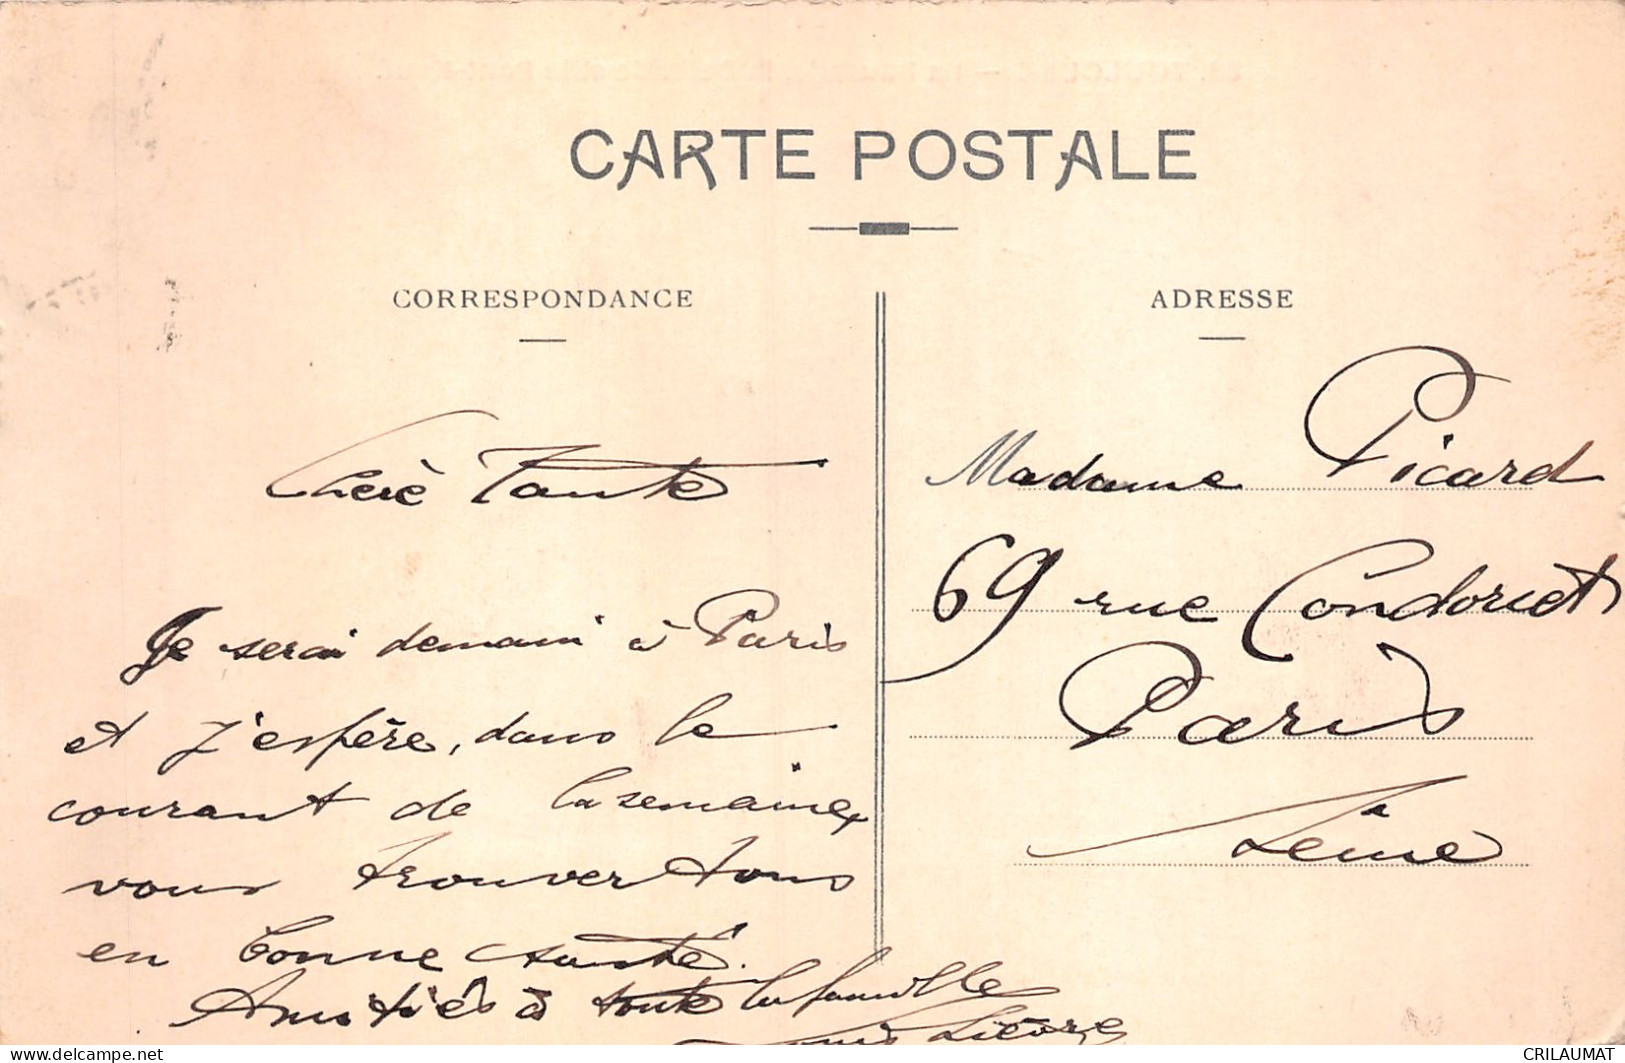 CARTE POSTALE
CORRESPONDANCE
ADRESSE
Chère Tante
Je serai demain à Paris
et j'espère, dans le
courant de la semaine,
vous trouver tous
en bonne santé.
Amitiés à toute la famille
Lièvre
Madame Picard
69 rue Condorcet
Paris
Seine
CRILAUMAT
delcampe.net